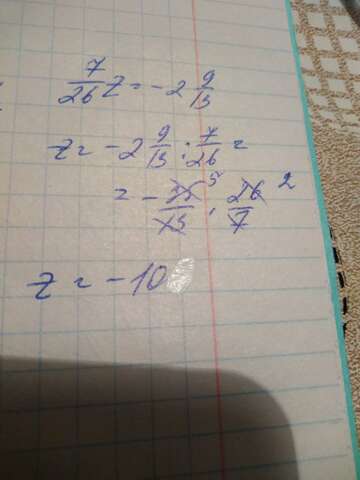 7/26 z = -2 9/13
z = -2 9/13 : 7/26 =
= - 35/13 5 · 26/7 2
z = -10